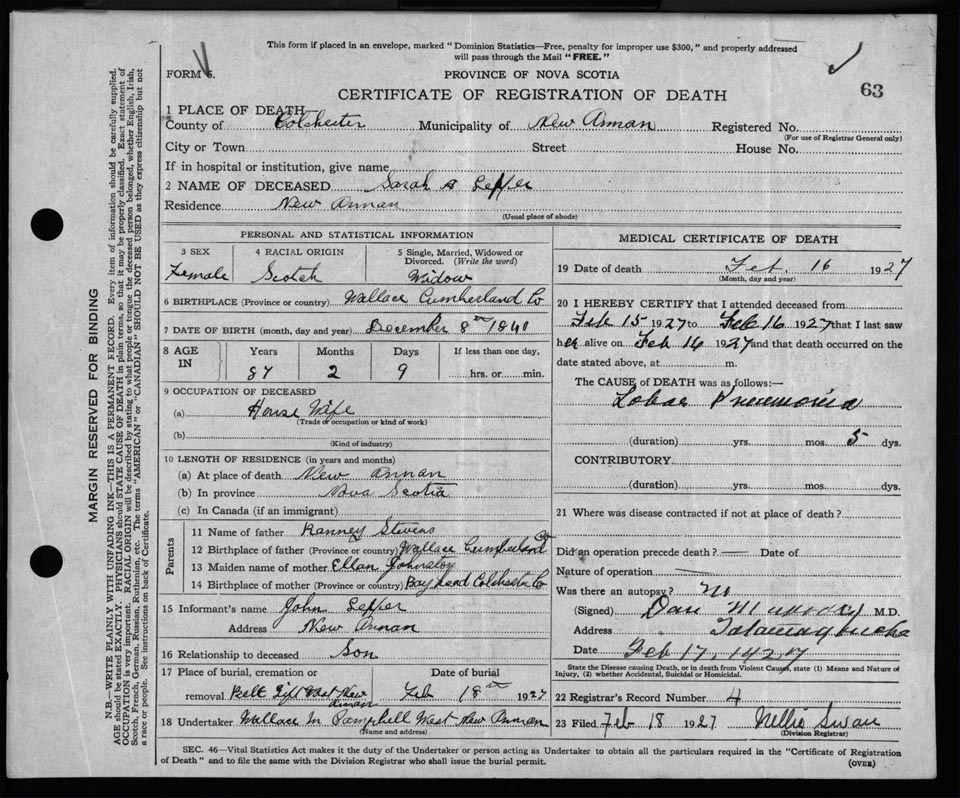 This form if placed in an envelope, marked "Dominion Statistics—Free, penalty for improper use $300," and properly addressed
will pass through the Mail "FREE."
FORM 6.
PROVINCE OF NOVA SCOTIA
CERTIFICATE OF REGISTRATION OF DEATH
63
1 PLACE OF DEATH
County of Colchester Municipality of New Annan Registered No.
(For use of Registrar General only)
City or Town Street House No.
If in hospital or institution, give name
2 NAME OF DECEASED Sarah A Leffer
Residence New Annan
(Usual place of abode)
PERSONAL AND STATISTICAL INFORMATION
3 SEX 4 RACIAL ORIGIN 5 Single, Married, Widowed or
Divorced. (Write the word)
Female Scotch Widow
6 BIRTHPLACE (Province or country) Wallace Cumberland Co
7 DATE OF BIRTH (month, day and year) December 8th 1840
8 AGE IN Years Months Days If less than one day,
87 2 9 hrs. or min.
9 OCCUPATION OF DECEASED
(a) House Wife
(Trade or occupation or kind of work)
(b)
(Kind of industry)
10 LENGTH OF RESIDENCE (in years and months)
(a) At place of death New Annan
(b) In province Nova Scotia
(c) In Canada (if an immigrant)
Parents
11 Name of father Ranney Stevens
12 Birthplace of father (Province or country) Wallace Cumberland Co
13 Maiden name of mother Ellan Johnston
14 Birthplace of mother (Province or country) Bay head Colchester Co
15 Informant's name John Leffer
Address New Annan
16 Relationship to deceased Son
17 Place of burial, cremation or Date of burial
removal West New Annan Feb 18th 1927
18 Undertaker Wallace M Campbell West New Annan
(Name and address)
MEDICAL CERTIFICATE OF DEATH
19 Date of death Fet. 16 1927
(Month, day and year)
20 I HEREBY CERTIFY that I attended deceased from
Feb 15 1927 to Feb 16 1927 that I last saw
her alive on Feb 16 1927 and that death occurred on the
date stated above, at m.
The CAUSE of DEATH was as follows:—
Lobar Pneumonia
(duration) yrs. mos. 5 dys.
CONTRIBUTORY.
(duration) yrs. mos. dys.
21 Where was disease contracted if not at place of death?
Did an operation precede death? — Date of
Nature of operation —
Was there an autopsy? no
(Signed) Dan Murray M.D.
Address Tatamagouche
Date Feb 17, 1927
State the Disease causing Death, or in death from Violent Causes, state (1) Means and Nature of
Injury, (2) whether Accidental, Suicidal or Homicidal.
22 Registrar's Record Number 4
23 Filed Feb 18 1927 Nellie Swan
(Division Registrar)
SEC. 46—Vital Statistics Act makes it the duty of the Undertaker or person acting as Undertaker to obtain all the particulars required in the "Certificate of Registration
of Death" and to file the same with the Division Registrar who shall issue the burial permit.
(OVER)
MARGIN RESERVED FOR BINDING
N.B.—WRITE PLAINLY WITH UNFADING INK—THIS IS A PERMANENT RECORD. Every item of information should be carefully supplied.
AGE should be stated EXACTLY. PHYSICIANS should STATE CAUSE OF DEATH in plain terms, so that it may be properly classified. Exact statement of
OCCUPATION is very important. RACIAL ORIGIN will be described by stating to what people or tongue the deceased person belonged, whether English, Irish,
Scotch, French, German, Russian, Ruthenian, etc. The terms "AMERICAN" or "CANADIAN" SHOULD NOT BE USED as they express citizenship but not
a race or people. See instructions on back of Certificate.